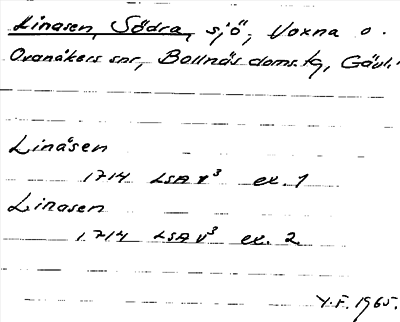 Linasen, Södra, sjö, Voxna o.
Ovanåkers snr, Bollnäs doms.tg, Gävl.
Linåsen
1714 LSA V³ ex. 1
Linasen
1714 LSA V³ ex. 2
Y.F. 1965.